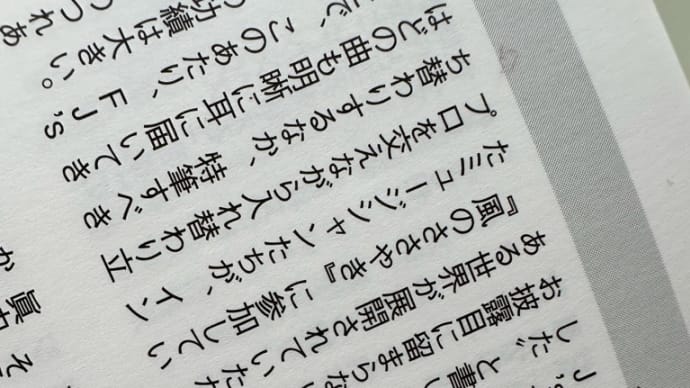 J's
した〟と書い
お披露目に留まらな
ある世界が展開されていた
『風のささやき』に参加してい
たミュージシャンたちが、イン
プロを交えながら入れ替わり立
ち替わりするなか、特筆すべき
はどの曲も明晰に耳に届いてき
で、このあたり、F J's
功績は大きい。
つれあ
そ
眞
か